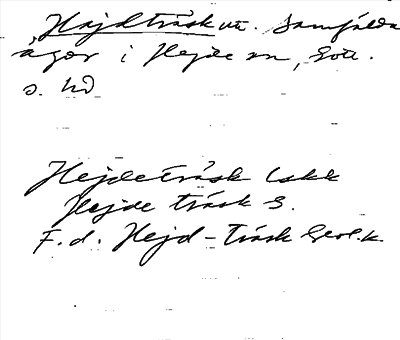 Hajdträsk vre. Samfällda
ägor i Hejde sn, Gotl.
s. hd
Hejdeträsk Lskk
Hejde träsk S.
F. d. Hejd-träsk Geol.k.